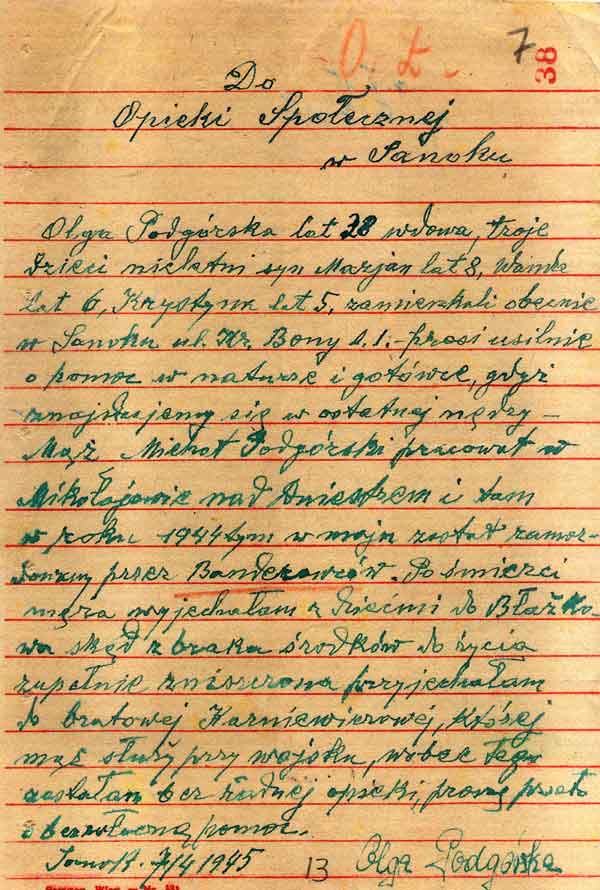 7
38
O. Ł.
Do
Opieki Społecznej
w Sanoku
Olga Podgórska lat 38 wdowa, troje
dzieci nieletni syn Marjan lat 8, Wanda
lat 6, Krystyna lat 5, zamieszkali obecnie
w Sanoku ul. Kr. Bony d. 1. - prosi usilnie
o pomoc w naturze i gotówce, gdyż
znajdujemy się w ostatniej nędzy -
Mąż Michał Podgórski pracował w
Mikołajowie nad Dniestrem i tam
w roku 1944tym w maju został zamor-
dowany przez Banderowców. Po śmierci
męża wyjechałam z dziećmi do Błażko-
wa skąd z braku środków do życia
zupełnie zniszczona przyjechałam
do bratowej Karniewiczowej, której
mąż służy przy wojsku, wobec tego
zostałam bez żadnej opieki, proszę przeto
o bezzwłoczną pomoc.
Sanok. 7/4 1945
13
Olga Podgórska